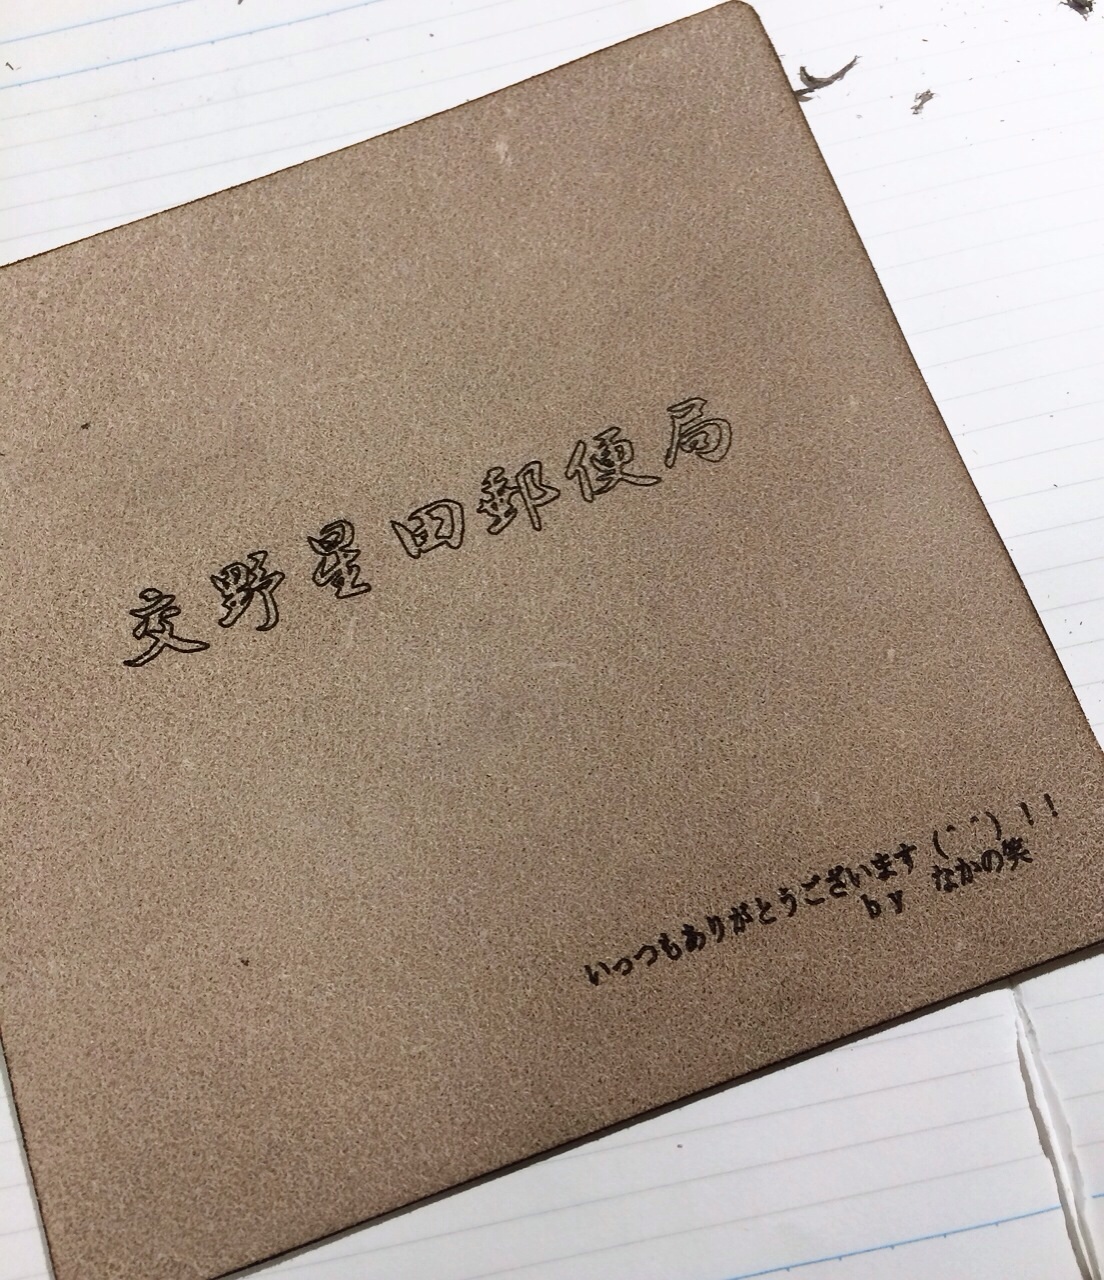 交野星田郵便局
いっつもありがとうございます(^^)！！
by なかの笑